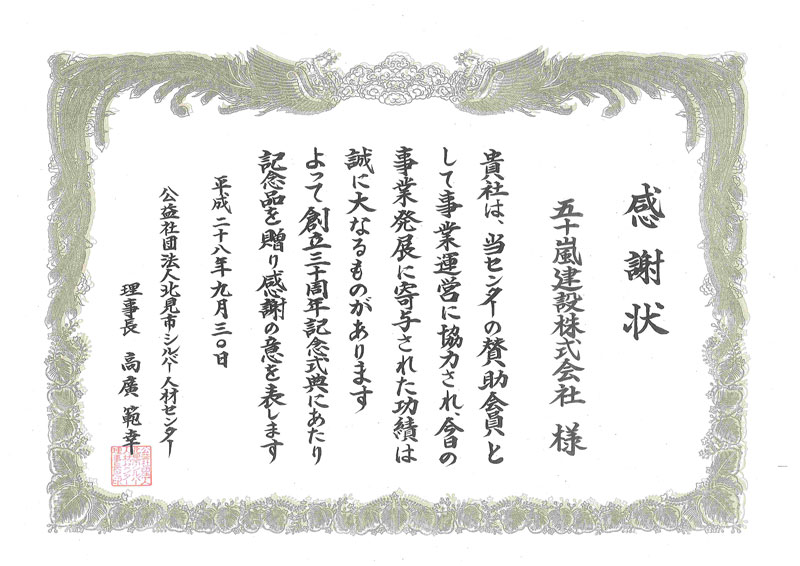 感謝状
五十嵐建設株式会社 様
貴社は、当センターの賛助会員と
して事業運営に協力され、今日の
事業発展に寄与された功績は
誠に大なるものがあります
よって創立三十周年記念式典にあたり
記念品を贈り感謝の意を表します
平成二十八年九月三〇日
公益社団法人北見市シルバー人材センター
理事長 高廣 範幸